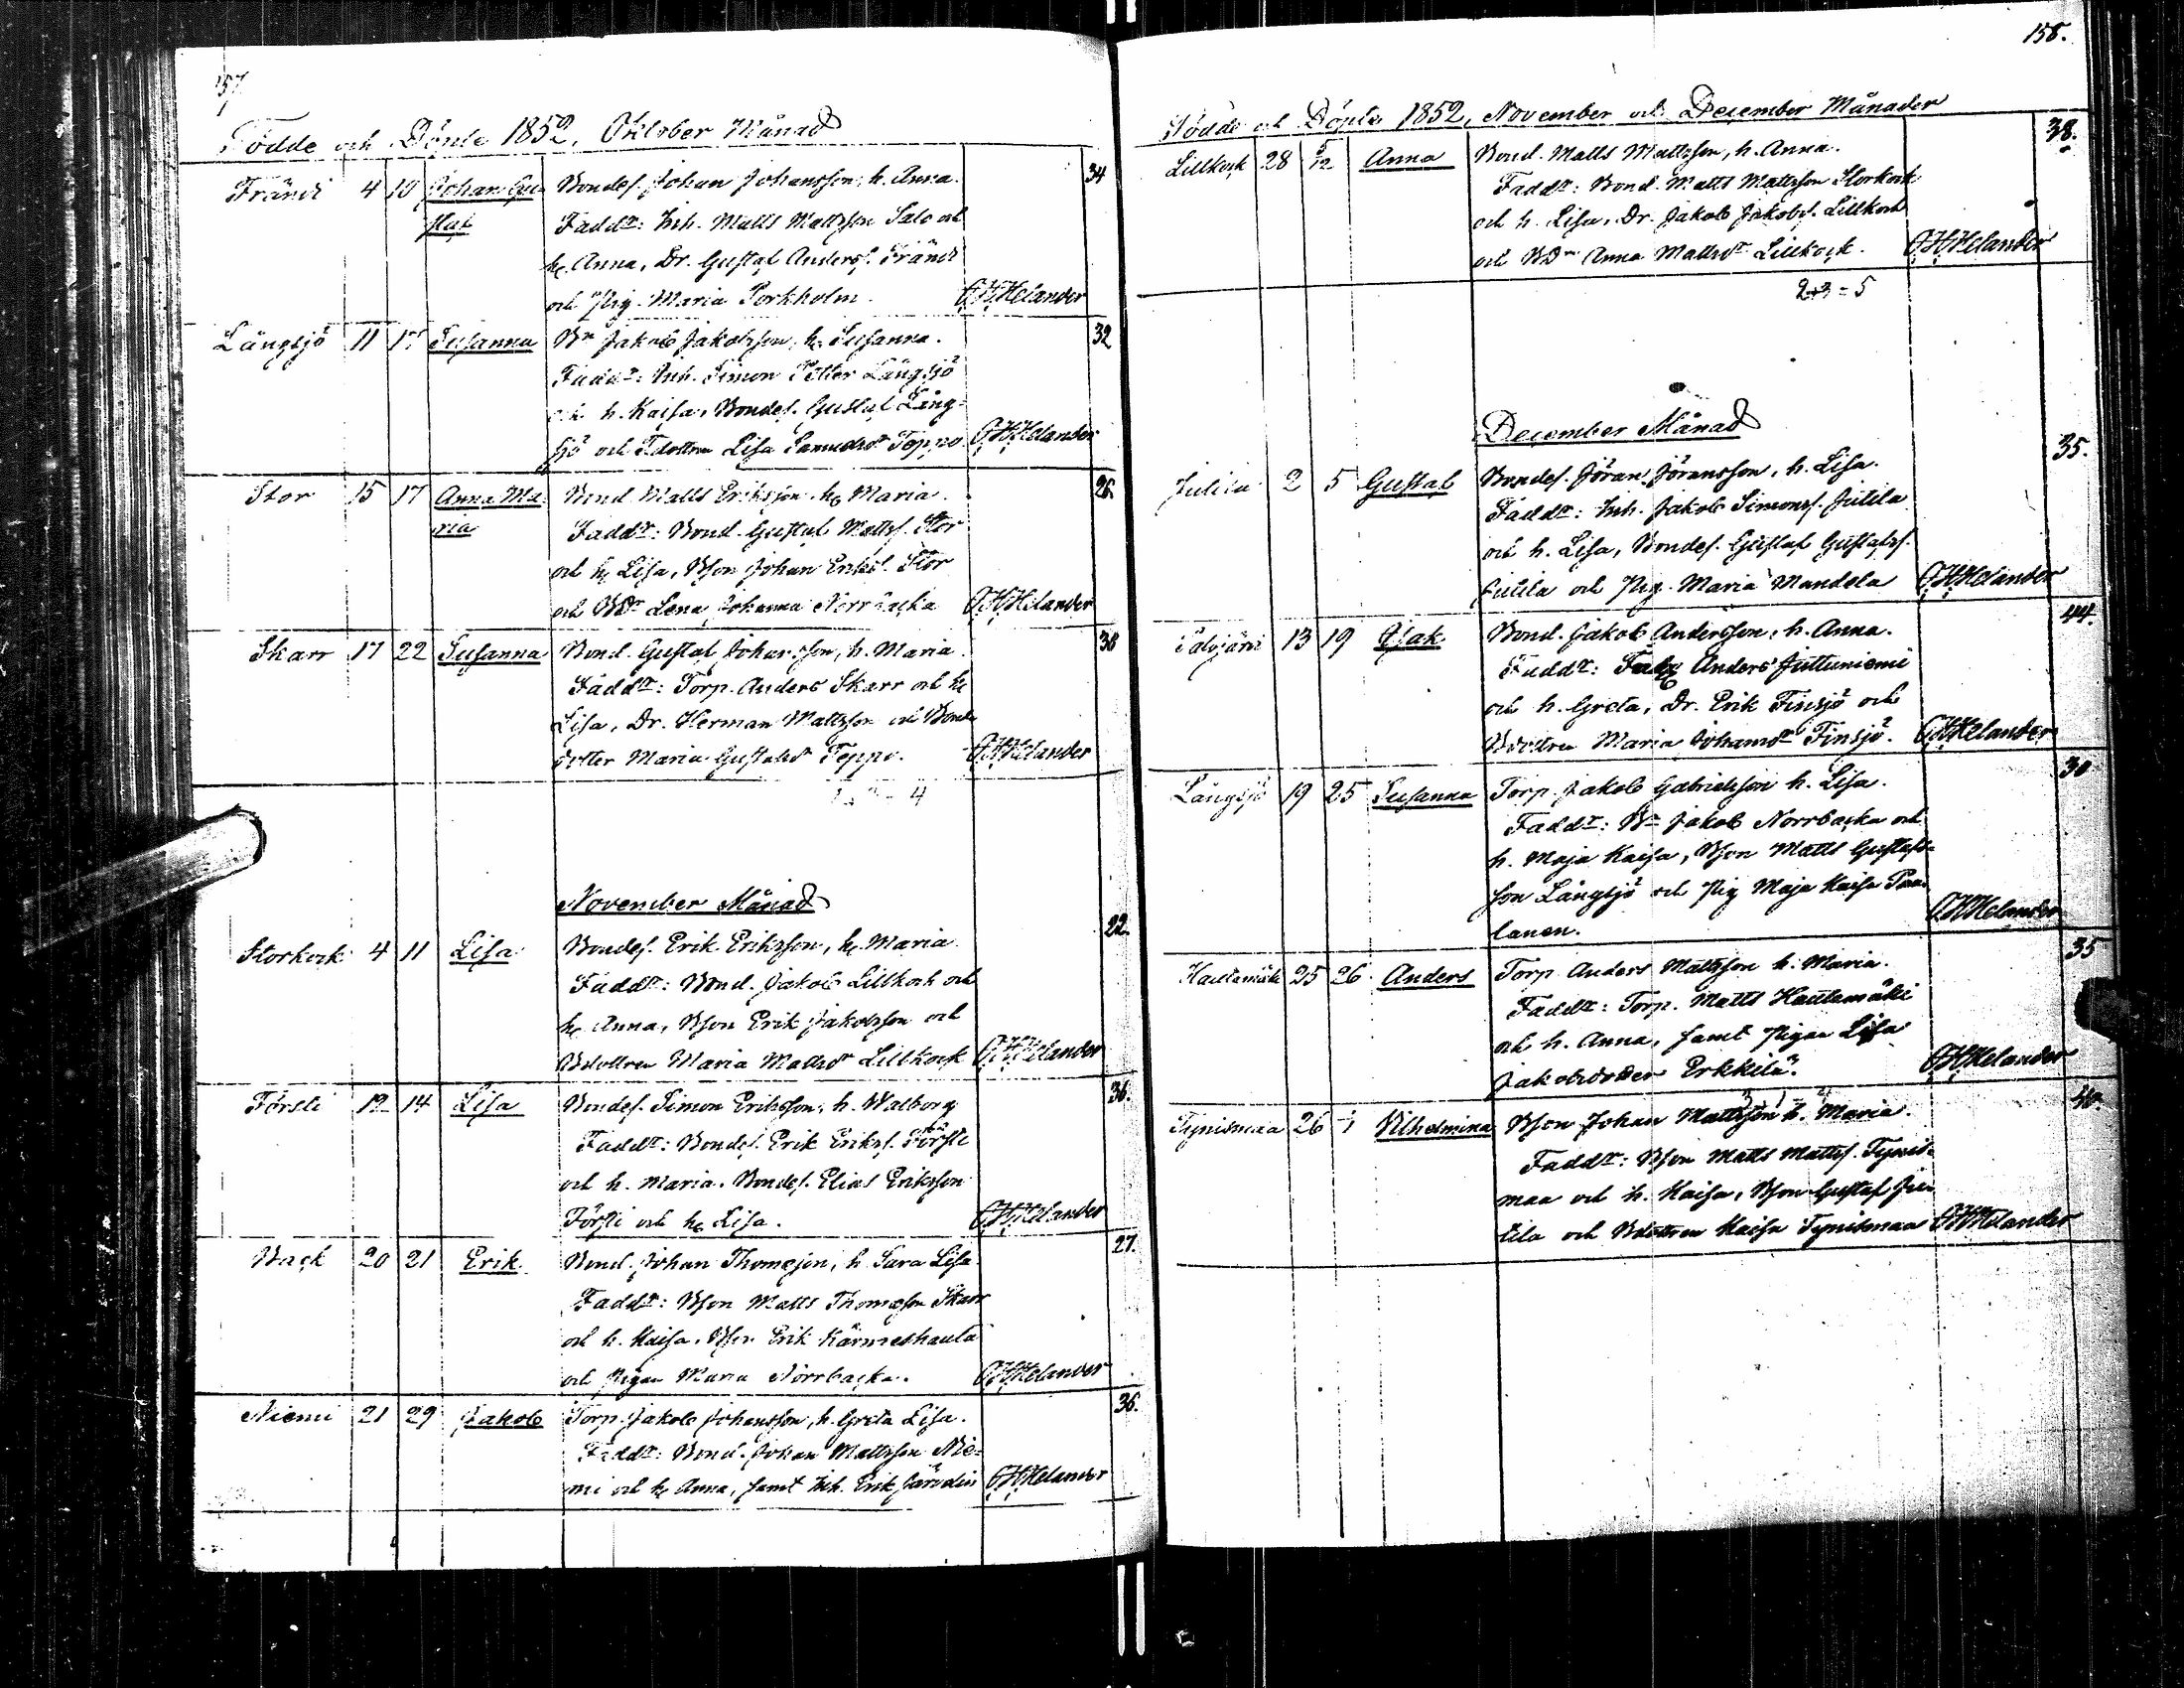 157
Födde och Döpte 1852, Oktober Månad
Frändi 4 10 Johan Gu- Bondes. Johan Johansson, h. Anna. 34
staf Faddr: Inh. Matts Mattsson Salo och
h. Anna, Dr. Gustaf Anders. Frändi
och Pig. Maria Porkholm. CHHelander
Långsjö 11 17 Susanna Bn Jakob Jakobsson, h. Susanna. 32
Faddr: Inh. Simon Petter Långsjö
och h. Kaisa, Bondes. Gustaf Lång-
sjö och Bdottren Lisa Samuelsdr Teppo. CHHelander
Stor 15 17 Anna Ma- Bond. Matts Eriksson, h. Maria. 26
ria Faddr: Bond. Gustaf Matts. Stor
och h. Lisa, Bson Johan Eriks. Stor
och BDr Lena Johanna Norrbacka CHHelander
Skarr 17 22 Susanna Bond. Gustaf Johansson, h. Maria. 38
Faddr: Torp. Anders Skarr och h.
Lisa, Dr. Herman Mattsson och Bonde
dotter Maria Gustafsdr Teppo. CHHelander
4
November Månad
Storkock 4 11 Lisa Bondes. Erik Eriksson, h. Maria. 22.
Faddr: Bond. Jakob Lillkock och
h. Anna, Bson Erik Jakobsson och
Bdottren Maria Mattsdr Lillkock CHHelander
Försti 12 14 Lisa Bondes. Simon Eriksson, h. Walborg 36.
Faddr: Bondes. Erik Eriks. Försti
och h. Maria. Bondes. Elias Eriksson
Försti och h. Lisa. CHHelander
Back 20 21 Erik Bond. Johan Thomæson, h. Sara Lisa. 27.
Faddr: Bson Matts Thomæson Skarr
och h. Kaisa. Bson Erik Kärmeshauta
och Pigan Maria Norrbacka. CHHelander
Niemi 21 29 Jakob Torp. Jakob Johansson, h. Greta Lisa. 36.
Faddr: Bond. Johan Mattsson Nie-
mi och h. Anna, samt Inh. Erik CHHelander
158.
Födde och Döpte 1852, November och December Månader
Lillkock 28 5/12 Anna Bond. Matts Mattsson, h. Anna. 38.
Faddr: Bond. Matts Mattsson Storkock
och h. Lisa, Dr. Jakob Jakobs. Lillkock
och BDn Anna Mattsdr Lillkock. CHHelander
2+3=5
December Månad
Jutila 2 5 Gustaf Bondes. Jöran Jöransson, h. Lisa. 35.
Faddr: Inh. Jakob Simons. Jutila
och h. Lisa, Bondes. Gustaf Gustafs.
Jutila och Pig. Maria Mandela CHHelander
13 19 Isak Bond. Jakob Andersson, h. Anna. 44.
Faddr: Anders Juttuniemi
och h. Greta, Dr. Erik Finsjö och
Bdottren Maria Johansdr Finsjö. CHHelander
Långsjö 19 25 Susanna Torp. Jakob Gabrielsson h. Lisa. 30
Faddr: Bn Jakob Norrbacka och
h. Maja Kaisa, Bson Matts Gustafs-
son Långsjö och Pig Maja Kaisa Paa-
lanen. CHHelander
Hautamäki 25 26 Anders Torp. Anders Mattsson h. Maria. 35
Faddr: Torp. Matts Hautamäki
och h. Anna, samt Pigan Lisa
Jakobsdotter Erkkilä. CHHelander
Tynismaa 26 Vilhelmina Bson Johan Mattsson h. Maria. 40.
Faddr: Bson Matts Matts. Tynis-
maa och h. Kaisa, Bson Gustaf Ju-
tila och Bdottren Kaisa Tynismaa CHHelander